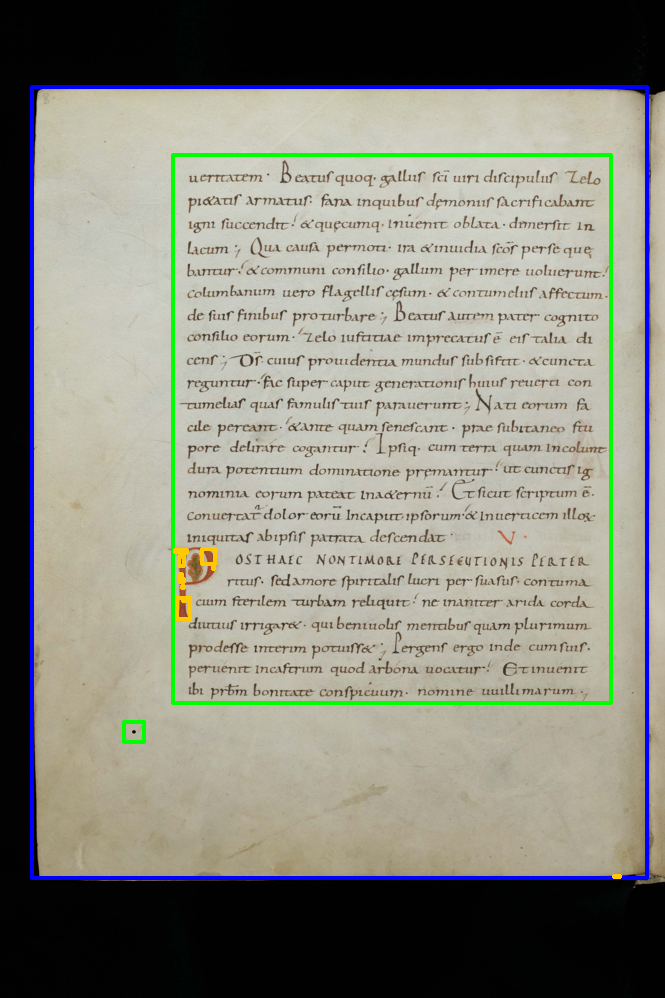 ueritatem · Beatus quoq· gallus sc̄i uiri discipulus Zelo
pi&atis armatus· fana in quibus dęmoniis sacrificabant
igni succendit · & quęcumq· inuenit oblata · dimersit in
lacum ; Qua causa permoti· ira & inuidia sc̄os perseque
bantur · & communi consilio · gallum perimere uoluerunt ·
columbanum uero flagellis cęsum · & contumeliis affectum ·
de suis finibus proturbare ; Beatus autem pater cognito
consilio eorum · Zelo iustitiae imprecatus ē eis talia di
cens ; Ds̄ cuius prouidentia mundus subsistit · & cuncta
reguntur · fac super caput generationis huius reuerti con
tumelias quas famulis tuis parauerunt ; Nati eorum fa
cile pereant · & ante quam senescant · prae subitaneo stu
pore delirare cogantur · Ipsiq· cum terra quam incolunt
dura potentium dominatione premantur · ut cunctis ig
nominia eorum pateat in a&ernū · Et sicut scriptum ē ·
conuertat dolor eorū In caput ipsorum · & In uerticem illoꝝ
iniquitas ab ipsis patrata descendat · V ·
POST HAEC NON TIMORE PERSECUTIONIS PERTER
ritus · sed amore spiritalis lucri persuasus · contuma
cium sterilem turbam reliquit · ne inaniter arida corda
diutius irrigar& · qui beniuolis mentibus quam plurimum
prodesse interim potuiss& ; Pergens ergo inde cum suis ·
peruenit in castrum quod arbona uocatur · Et inuenit
ibi prb̄m bonitate conspicuum · nomine uuillimarum ·